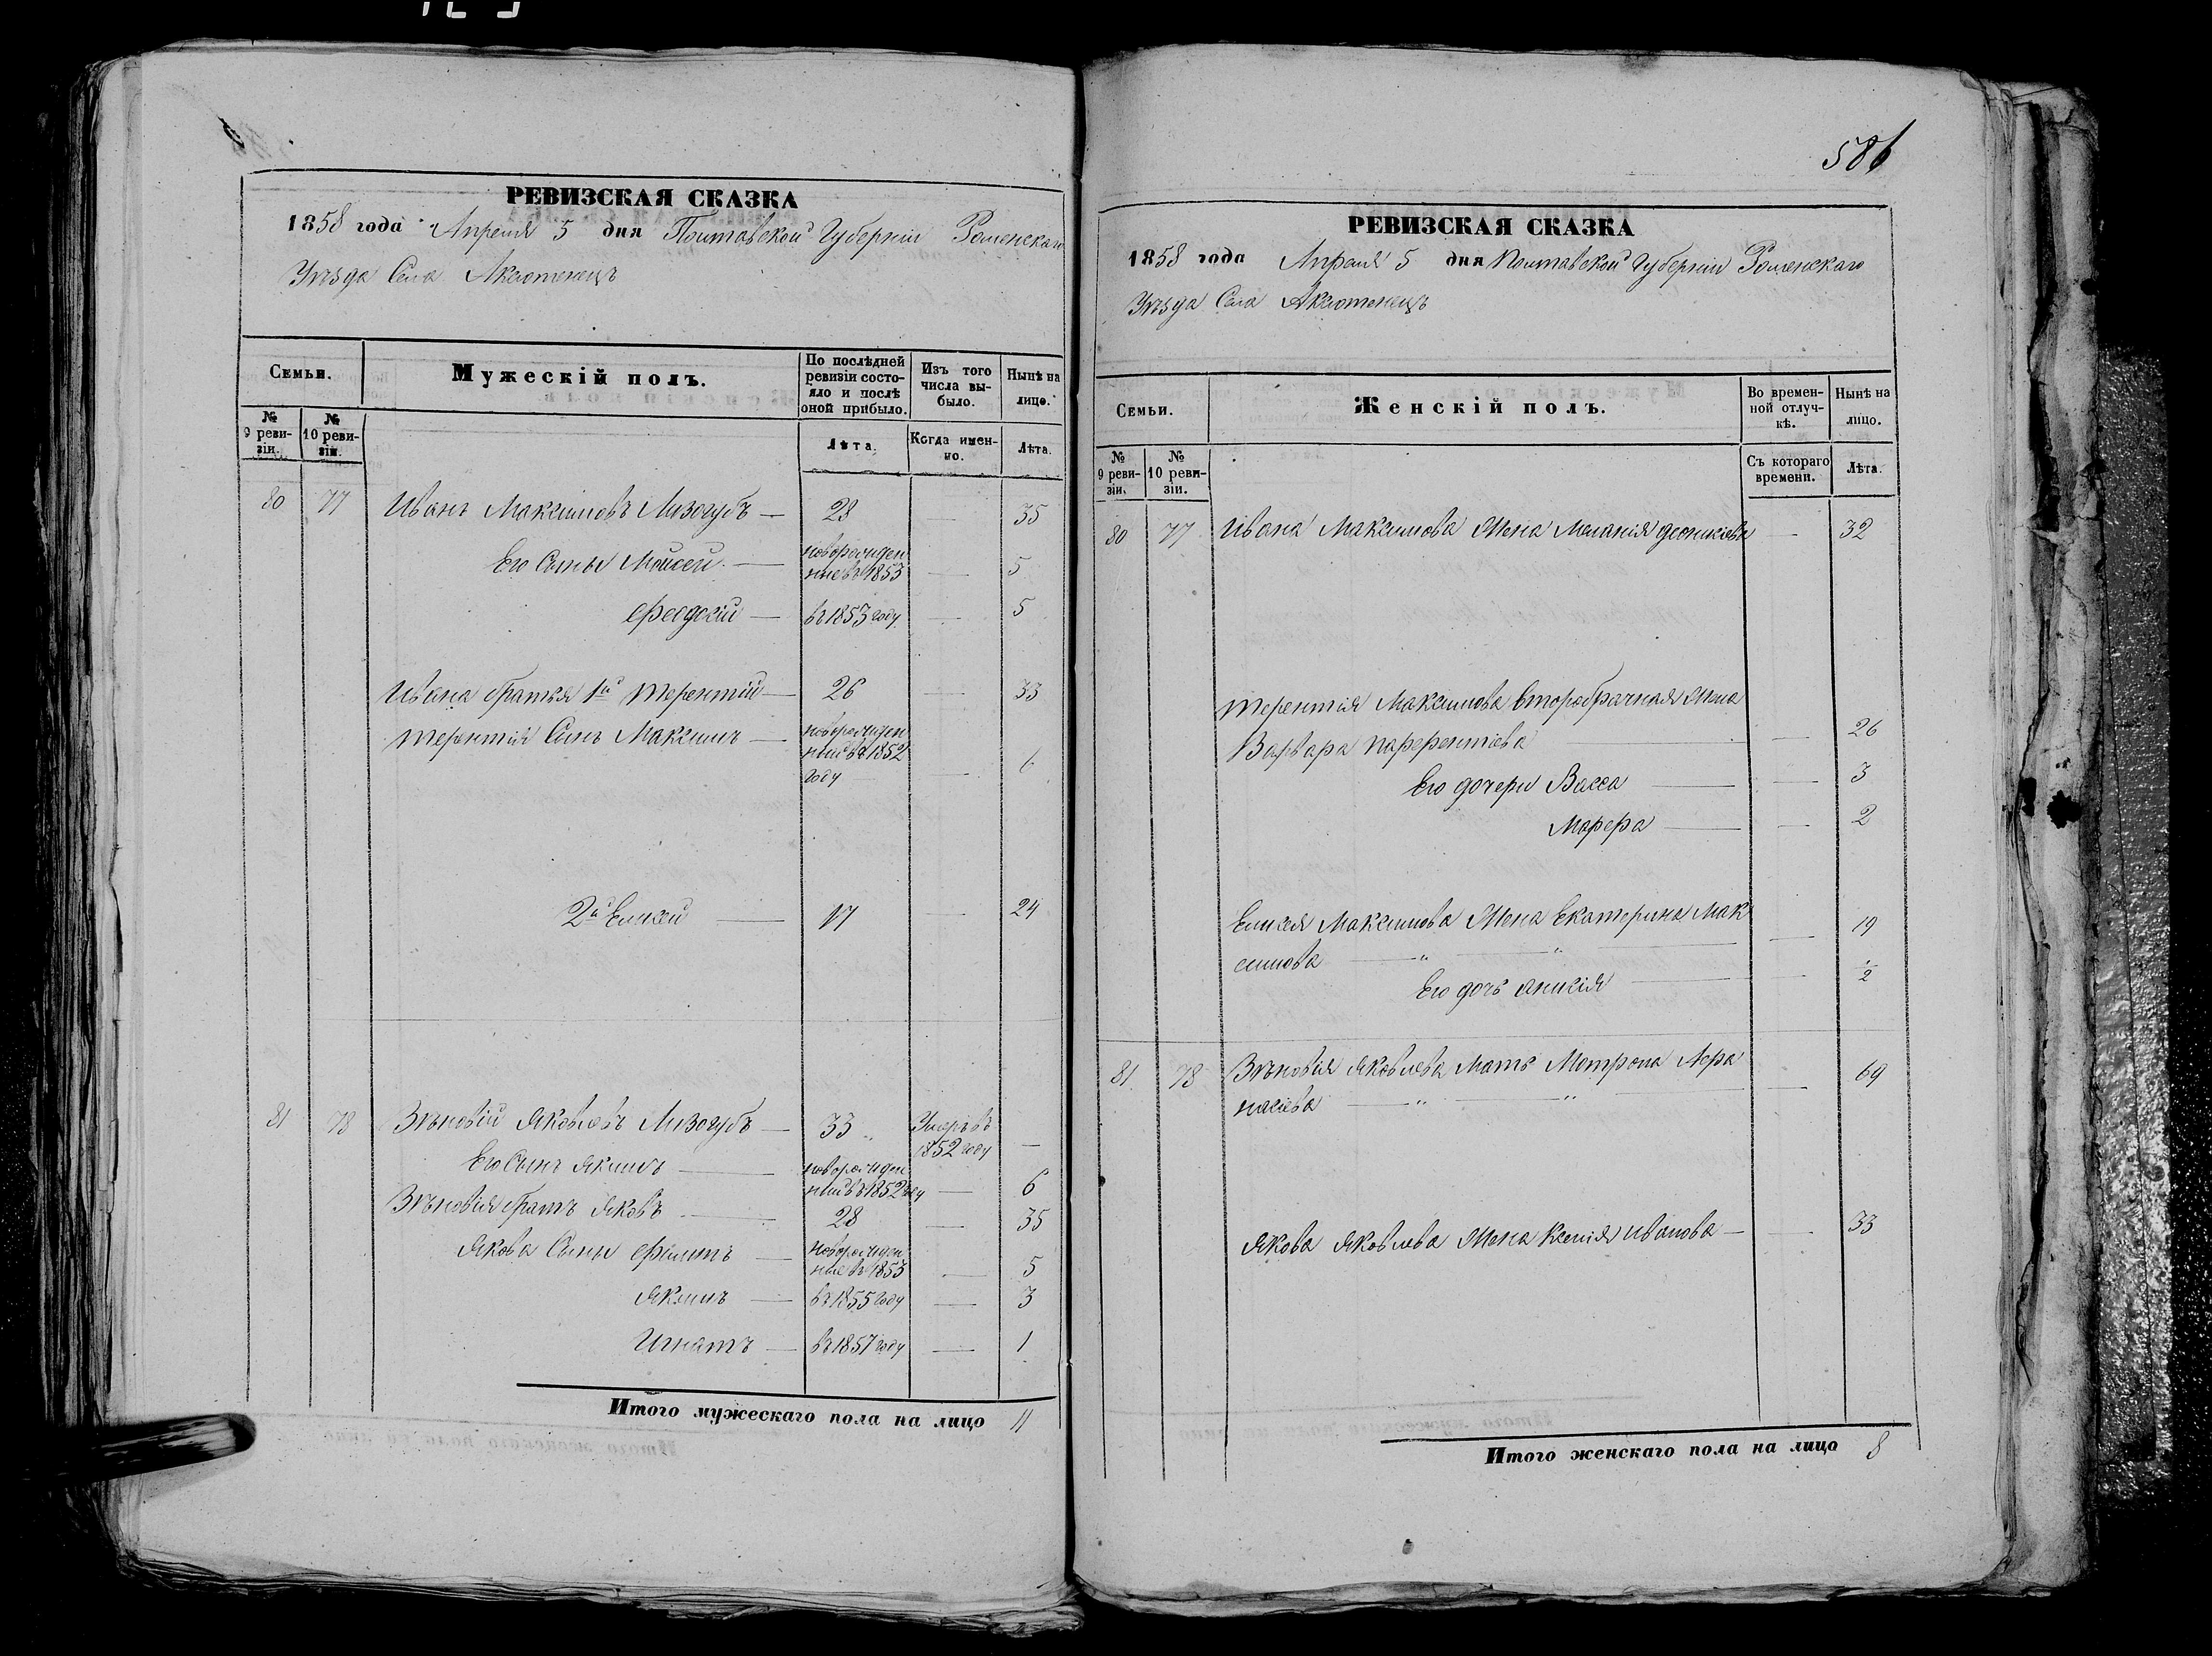 586
РЕВИЗСКАЯ СКАЗКА
1858 года Апреля 5 дня Полтавской Губернии Роменскаго
Уѣзда Села Аксютенецъ
Семьи.
Мужескій полъ.
По послѣдней ревизіи состояло и послѣ оной прибыло.
Изъ того числа выбыло.
Нынѣ на лицо.
№ 9 ревизіи.
№ 10 ревизіи.
Лѣта.
Когда именно.
Лѣта.
80 77 Иванъ Максимовъ Лизогубъ — 28 — 35
Его Сыны Моисей — новорожденные въ 1853 — 5
Феодосій — въ 1853 году — 5
Ивана братья 1й Терентій — 26 — 33
Терентія Сынъ Максимъ — новорожденный въ 1852 году — 6
2й Елисей — 17 — 24
81 78 Зѣновій Яковлевъ Лизогубъ — 33 Умеръ въ 1852 году —
Его Сынъ Якимъ — новорожденный въ 1852 году — 6
Зѣновія братъ Яковъ — 28 — 35
Якова Сыны Филипъ — новорожденные въ 1853 — 5
Якимъ — въ 1855 году — 3
Игнатъ — въ 1857 году — 1
Итого мужескаго пола на лицо 11
РЕВИЗСКАЯ СКАЗКА
1858 года Апреля 5 дня Полтавской Губернии Роменскаго
Уѣзда Села Аксютенецъ
Семьи.
Женскій полъ.
Во временной отлучкѣ.
Нынѣ на лицо.
№ 9 ревизіи.
№ 10 ревизіи.
Съ котораго времени.
Лѣта.
80 77 Ивана Максимова Жена Меланія — 32
Терентія Максимова второбрачная Жена
Варвара Парфентіева — 26
Его дочери Васса — 3
Марфа — 2
Елисея Максимова Жена Екатерина Мак
симова — " — " — 19
Его дочь Анисія — 1/2
81 78 Зѣновія Яковлева Мать Матрона Афа
насіева — " — " — 69
Якова Яковлева Жена Ксенія Иванова — 33
Итого женскаго пола на лицо 8